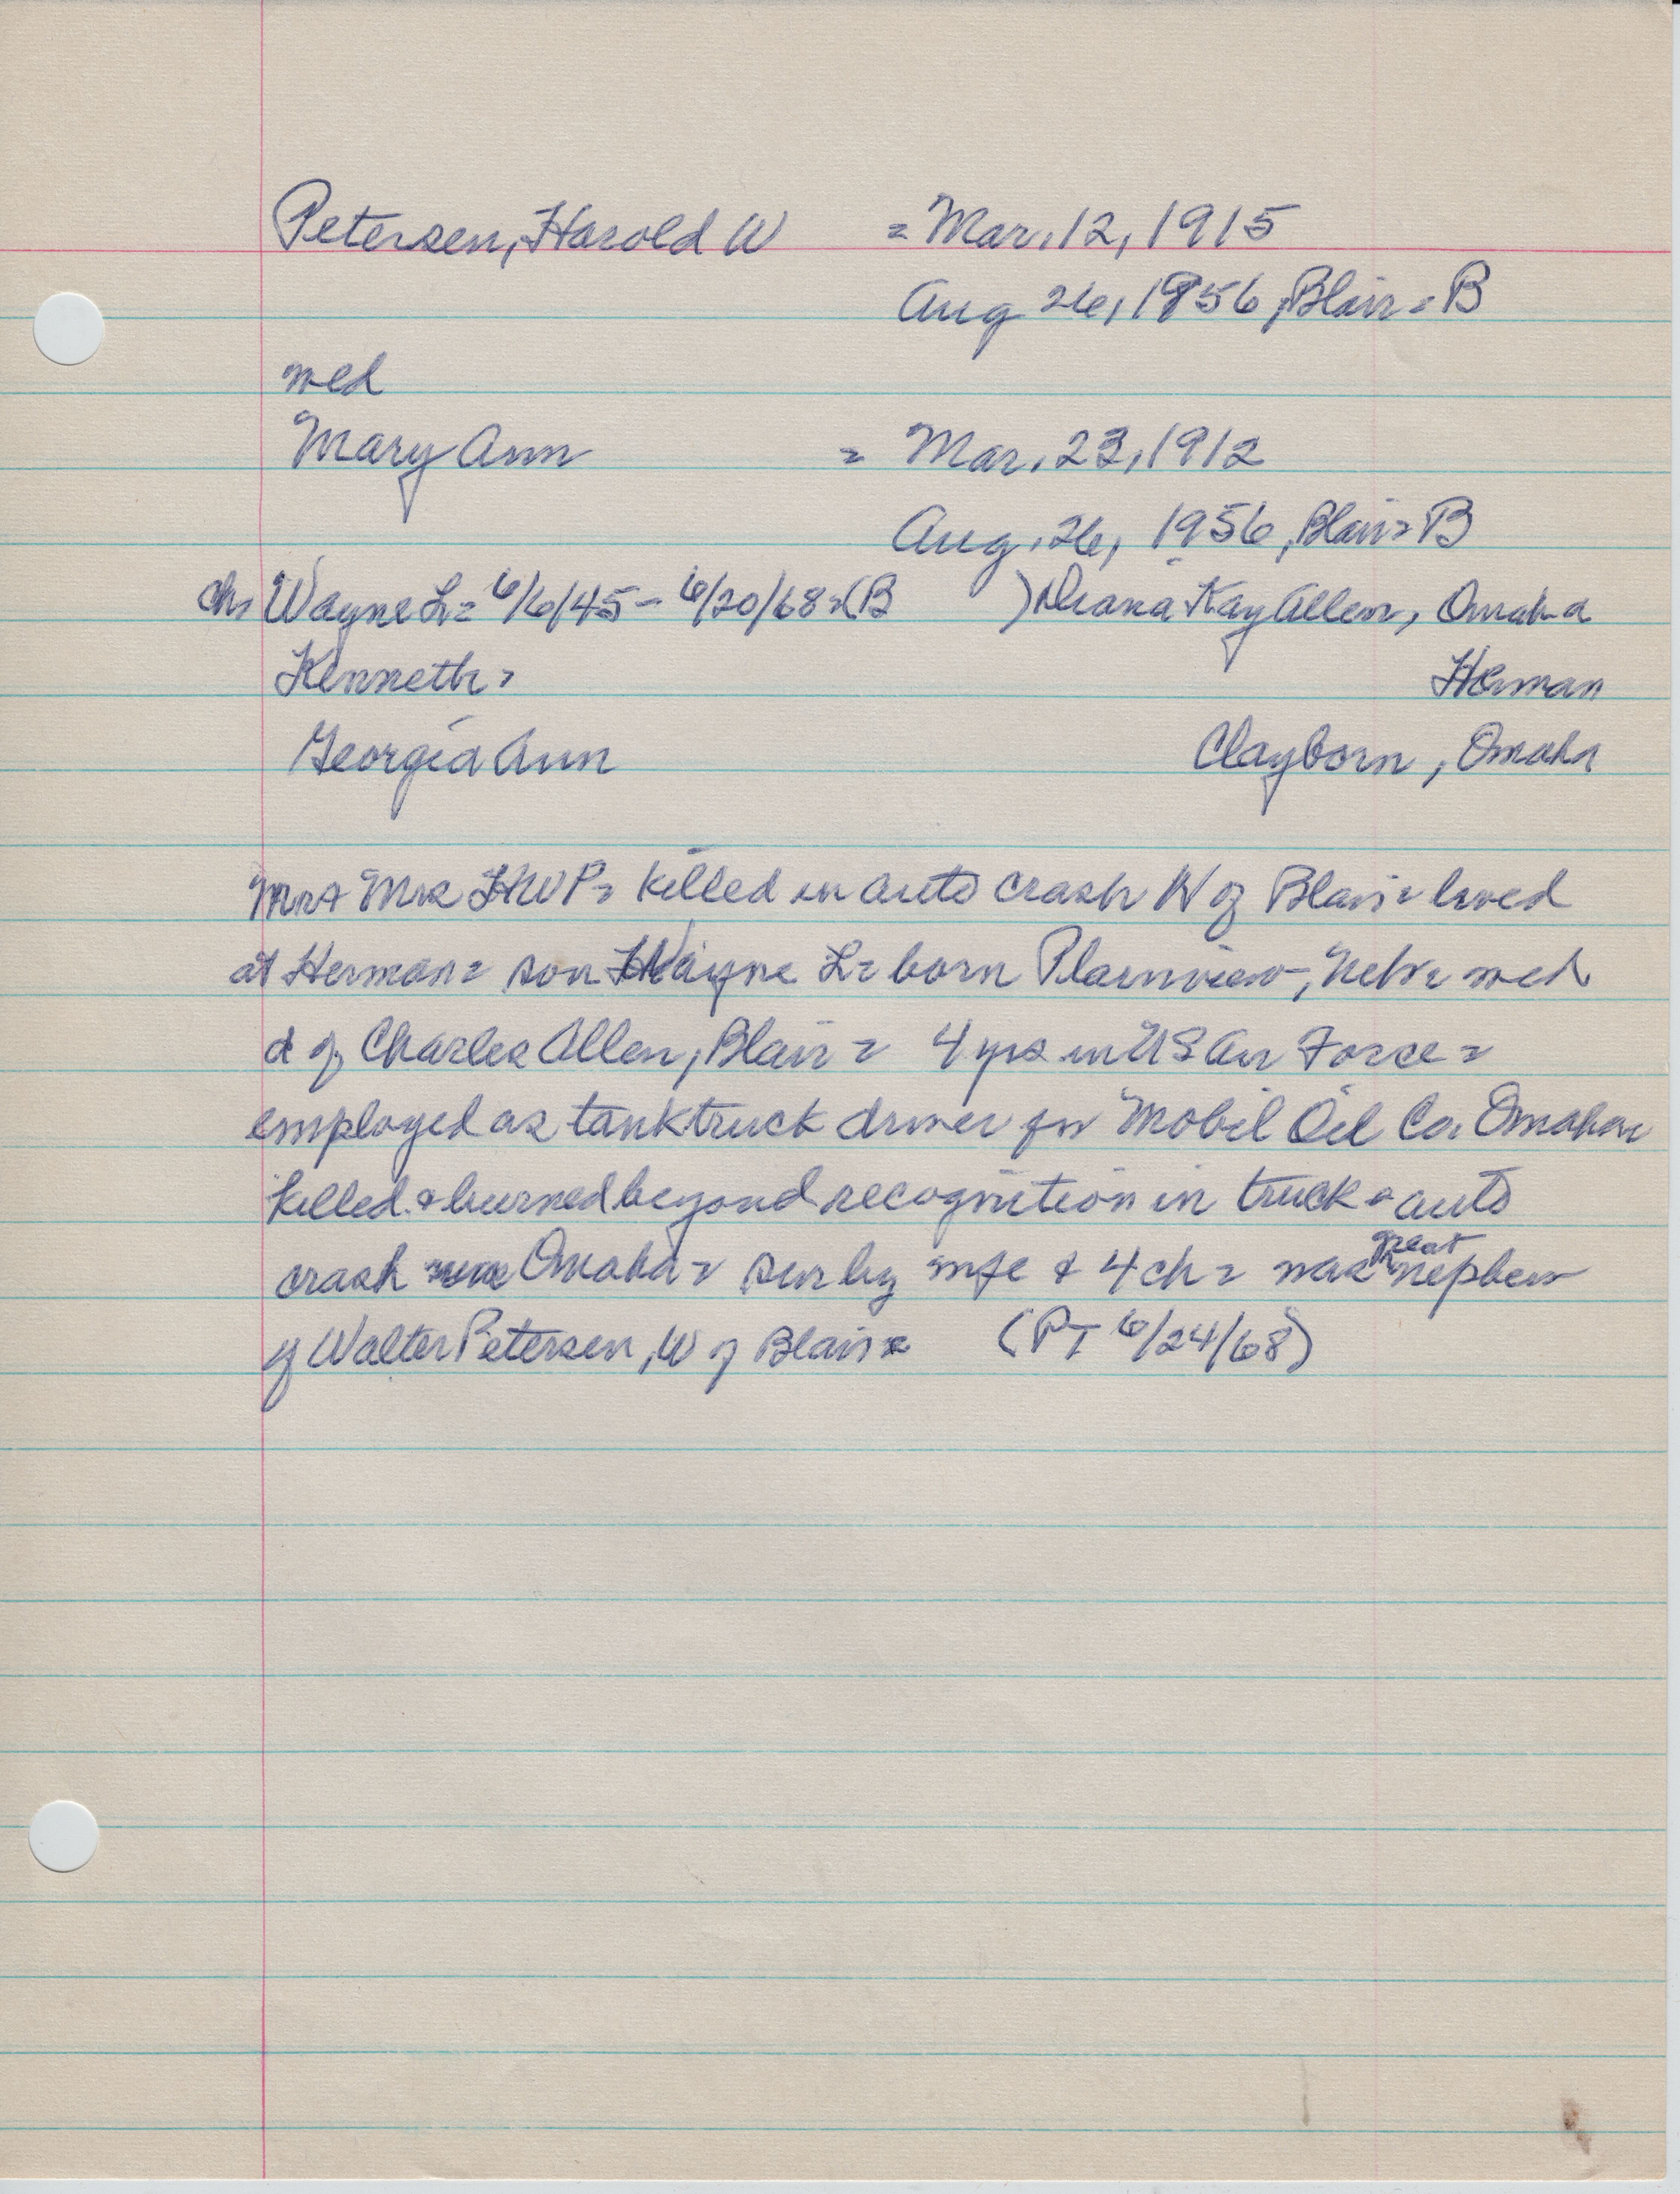 Petersen, Harold W = Mar. 12, 1915
Aug 26, 1956, Blair = B
med
Mary Ann = Mar. 23, 1912
Aug. 26, 1956, Blair = B
ch = Wayne L = 6/6/45 - 6/20/68 = (B ) Diana Kay Allen, Omaha
Kenneth = Herman
Georgia Ann Clayborn, Omaha
Mr & Mrs HWP = killed in auto crash W of Blair = lived
at Herman = son Wayne L = born Plainview, Nebr = med
d of Charles Allen, Blair = 4 yrs in US Air Force =
employed as tank truck driver for Mobil Oil Co. Omaha =
killed & burned beyond recognition in truck & auto
crash Omaha = sur by wife & 4 ch = was great nephew
of Walter Petersen, W of Blair = (PT 6/24/68)